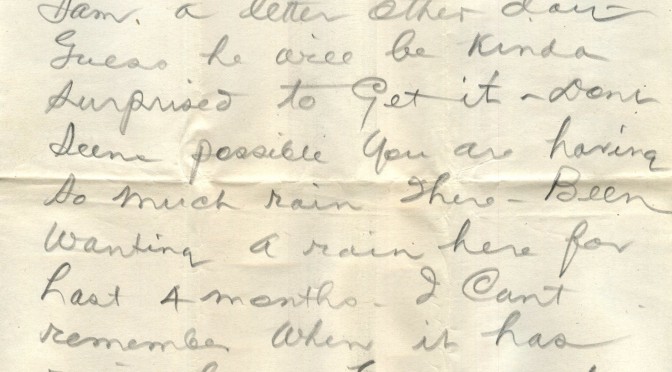 Sam. a letter other day
Guess he will be kinda
surprised to Get it - Dont
Seem possible You are having
So much rain There - Been
Wanting a rain here for
last 4 months - I Cant
remember When it has